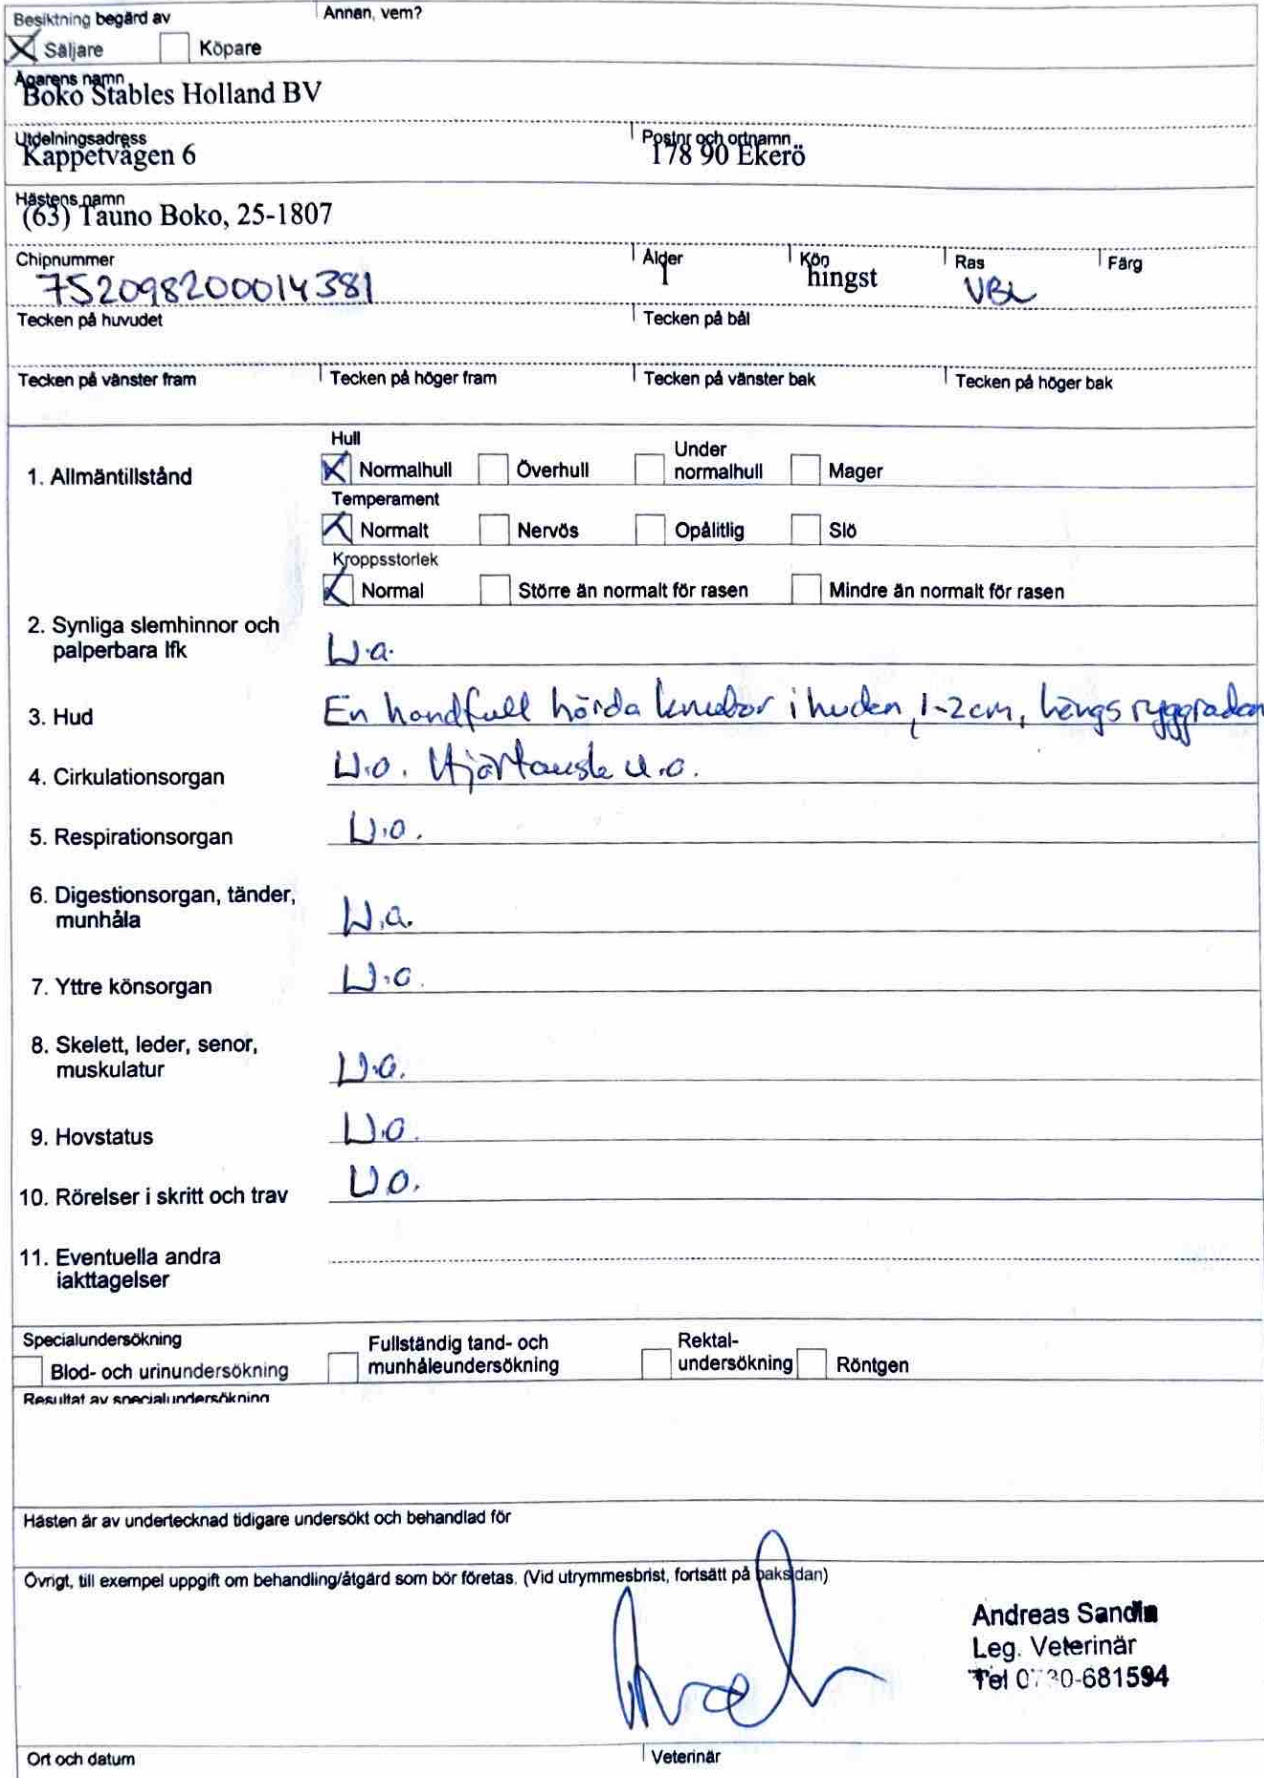 Besiktning begärd av Annan, vem?
Säljare Köpare
Ägarens namn
Boko Stables Holland BV
Utdelningsadress Postnr och ortnamn
Kappetvägen 6 178 90 Ekerö
Hästens namn
(63) Tauno Boko, 25-1807
Chipnummer Ålder Kön Ras Färg
752098200014381 1 hingst VBL
Tecken på huvudet Tecken på bål
Tecken på vänster fram Tecken på höger fram Tecken på vänster bak Tecken på höger bak
Hull
1. Allmäntillstånd Normalhull Överhull Under normalhull Mager
Temperament
Normalt Nervös Opålitlig Slö
Kroppsstorlek
Normal Större än normalt för rasen Mindre än normalt för rasen
2. Synliga slemhinnor och
palperbara lfk U.a.
3. Hud En handfull hårda knutor i huden, 1-2cm, längs ryggraden
4. Cirkulationsorgan U.a. Hjärtausk u.a.
5. Respirationsorgan U.a.
6. Digestionsorgan, tänder,
munhåla U.a.
7. Yttre könsorgan U.a.
8. Skelett, leder, senor,
muskulatur U.a.
9. Hovstatus U.a.
10. Rörelser i skritt och trav U.a.
11. Eventuella andra
iakttagelser
Specialundersökning
Blod- och urinundersökning Fullständig tand- och munhåleundersökning Rektal-undersökning Röntgen
Resultat av specialundersökning
Hästen är av undertecknad tidigare undersökt och behandlad för
Övrigt, till exempel uppgift om behandling/åtgärd som bör företas. (Vid utrymmesbrist, fortsätt på baksidan)
Andreas Sandin
Leg. Veterinär
Tel 0730-681594
Ort och datum Veterinär